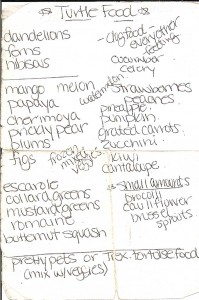 ☆ Turtle Food ☆
dandelions
ferns
hibisus
- dog food
every other
feeding
cucumber
celery
mango melon
papaya
cherimoya
prickly pear
plums
figs
watermelon
strawberries
pears
pineapple
pumpkin
grated carrots
zucchini
kiwi
cantalope
frozen
mixed
veg
escarole
collard greens
mustard greens
romaine
butternut squash
☆ small amounts
brocoli
cauliflower
brussel
sprouts
pretty pets or T-rex tortoise food
(mix w/ veggies)